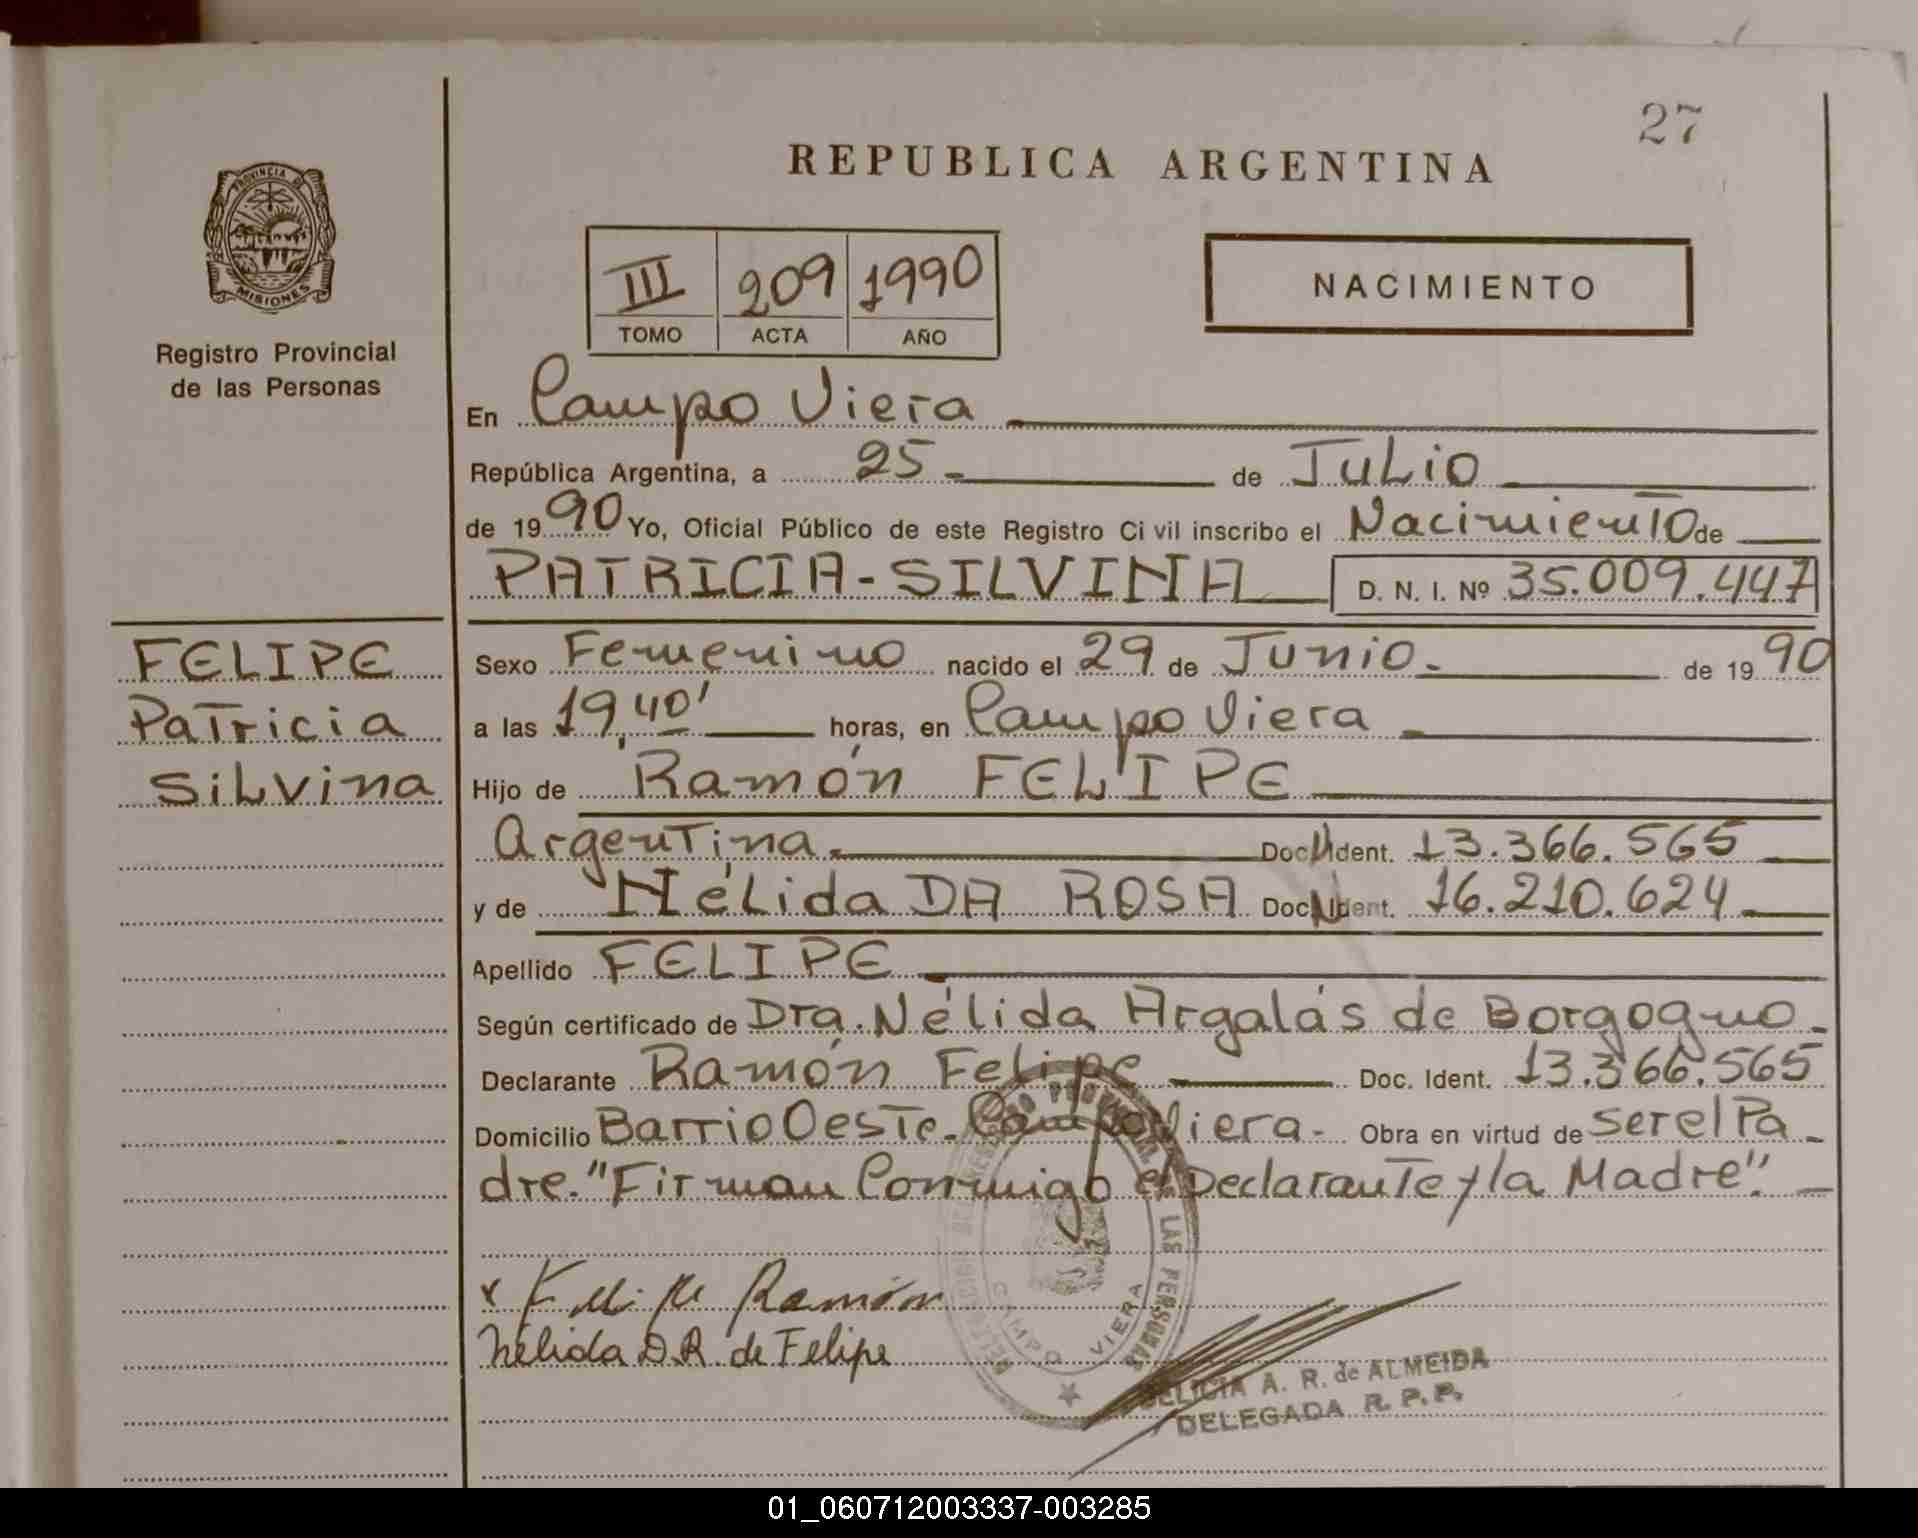 27
REPUBLICA ARGENTINA
PROVINCIA DE
MISIONES
Registro Provincial
de las Personas
III 209 1990
TOMO ACTA AÑO
NACIMIENTO
En Campo Viera
República Argentina, a 25- de JULIO
de 1990 Yo, Oficial Público de este Registro Ci vil inscribo el Nacimiento de
PATRICIA-SILVINA D. N. I. Nº 35.009.447
FELIPE
Patricia
Silvina
Sexo Femenino nacido el 29 de Junio.- de 1990
a las 19,40' horas, en Campo Viera
Hijo de Ramón FELIPE
Argentina.- Doc. Ident. 13.366.565
y de Nélida DA ROSA Doc. Ident. 16.210.624
Apellido FELIPE
Según certificado de Dra. Nélida Argalás de Borgogno-
Declarante Ramón Felipe Doc. Ident. 13.366.565
Domicilio Barrio Oeste-Campo Viera- Obra en virtud de ser el Pa-
dre. "Firman Conmigo el Declarante y la Madre".-
x Felipe Ramón
Nélida D.R. de Felipe
PROVINCIAL DE LAS PERSONAS
CAMPO VIERA
FELICIA A. R. de ALMEIDA
DELEGADA R. P. P.
01_060712003337-003285